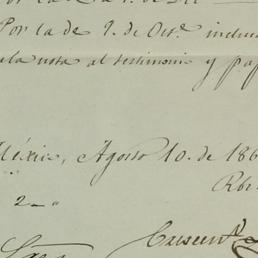 Por la de 9. de Oct.e inclu
la nota al testimonio y pap
México, Agosto 10. de 186
Rbi
2
Crescen